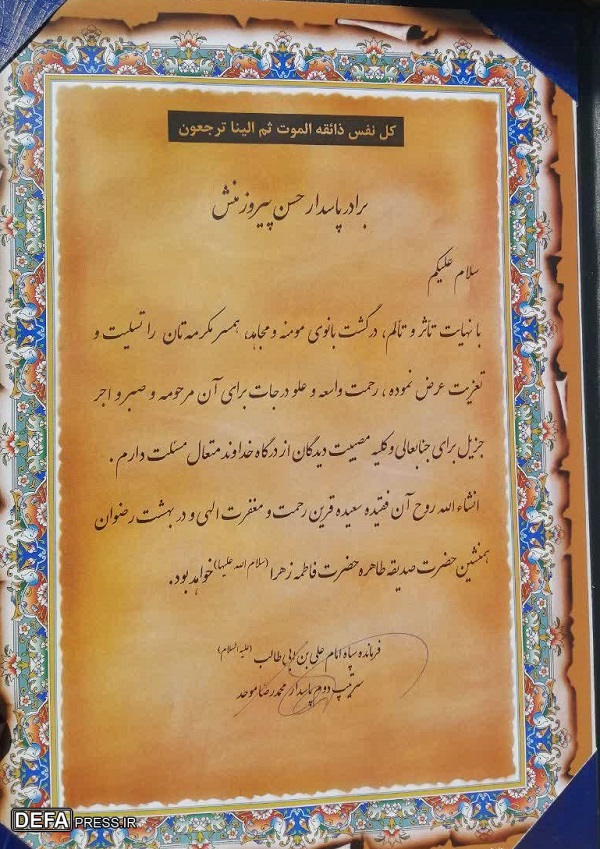 کل نفس ذائقه الموت ثم الینا ترجعون
برادر پاسدار حسن پیروز منش
سلام علیکم
با نهایت تاثر و تألم، درگشت بانوی مومنه و مجاهد، همسر مکرمه تان را تسلیت و
تعزیت عرض نموده، رحمت واسعه و علو درجات برای آن مرحومه و صبر و اجر
جزیل برای جنابعالی و کلیه مصیبت دیدگان از درگاه خداوند متعال مسئلت دارم.
انشاء الله روح آن فقیده سعیده قرین رحمت و مغفرت الهی و در بهشت رضوان
همنشین حضرت صدیقه طاهره حضرت فاطمه زهرا (سلام الله علیها) خواهد بود.
فرمانده سپاه امام علی بن ابی طالب (علیه السلام)
سرتیپ دوم پاسدار محمدرضا موحد
DEFAPRESS.IR